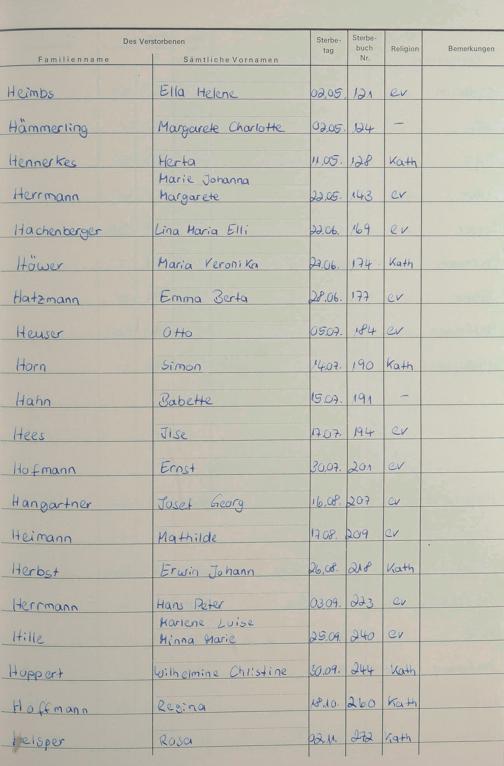 Des Verstorbenen
Familienname Sämtliche Vornamen Sterbe-tag Sterbe-buch Nr. Religion Bemerkungen
Heimbs Ella Helene 02.05. 121 ev
Hämmerling Margarete Charlotte 02.05. 124 –
Hennerkes Herta 11.05. 128 Kath
Marie Johanna
Herrmann Margarete 22.05. 143 ev
Hachenberger Lina Maria Elli 22.06. 169 ev
Höwer Maria Veronika 27.06. 174 Kath
Hatzmann Emma Berta 28.06. 177 ev
Heuser Otto 05.07. 184 ev
Horn Simon 14.07. 190 Kath
Hahn Babette 15.07. 191 –
Hees Ilse 17.07. 194 ev
Hofmann Ernst 30.07. 201 ev
Hangartner Josef Georg 16.08. 207 ev
Heimann Mathilde 17.08. 209 ev
Herbst Erwin Johann 26.08. 218 Kath
Herrmann Hans Peter 03.09. 223 ev
Marlene Luise
Hille Minna Marie 25.09. 240 ev
Huppert Wilhelmine Christine 30.09. 244 Kath
Hoffmann Regina 18.10. 260 Kath
Heisper Rosa 02.11. 272 Kath